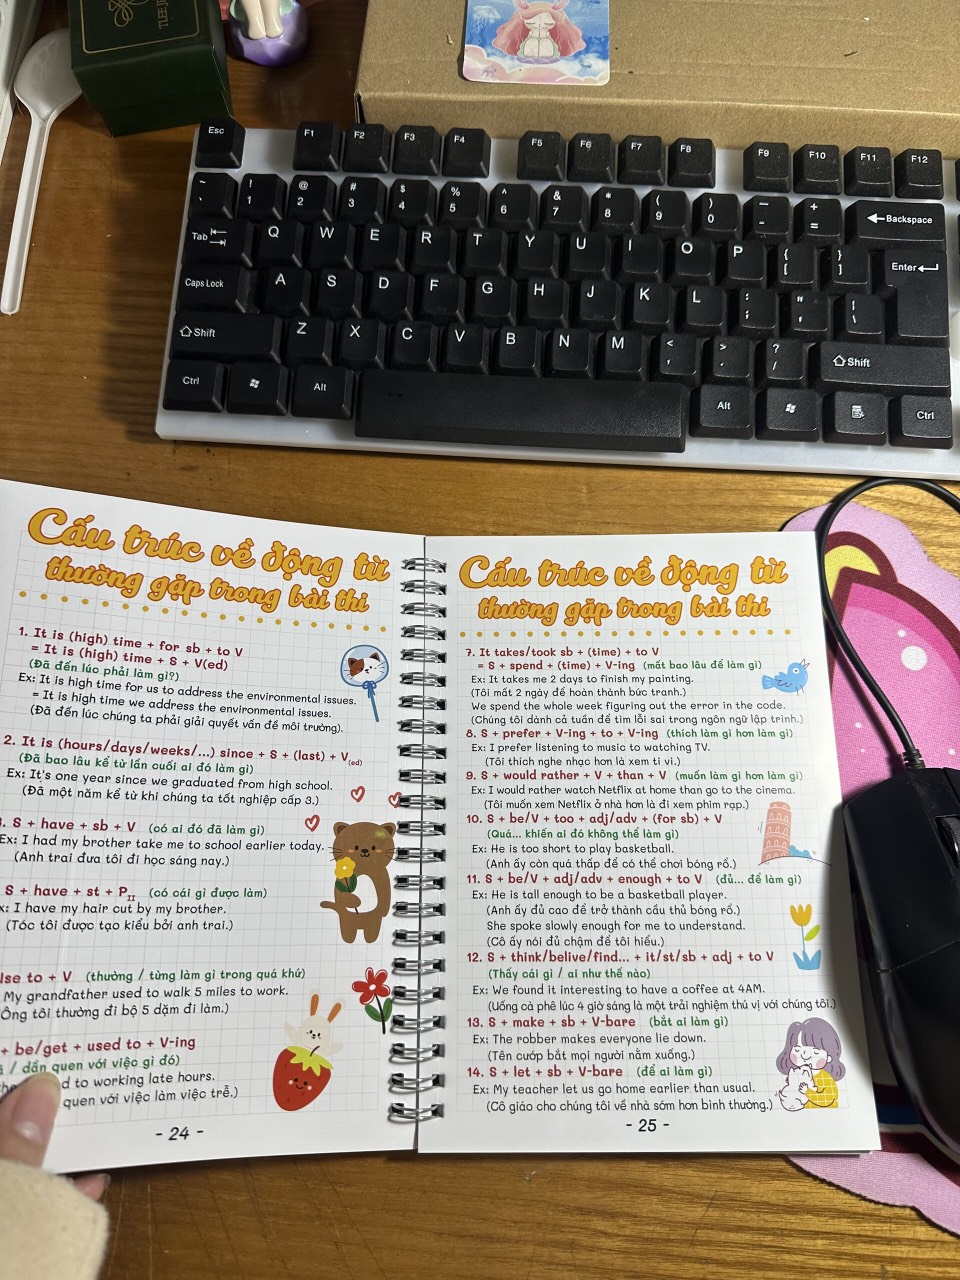 TLEE
Esc F1 F2 F3 F4 F5 F6 F7 F8 F9 F10 F11 F12
~ ! @ # $ % ^ & * ( ) _ +
` 1 2 3 4 5 6 7 8 9 0 - = Backspace
Tab Q W E R T Y U I O P { [ } ] Enter
Caps Lock A S D F G H J K L : ; " ' | \
Shift Z X C V B N M < , > . ? / Shift
Ctrl Alt Alt Ctrl
Cấu trúc về động từ
thường gặp trong bài thi
1. It is (high) time + for sb + to V
= It is (high) time + S + V(ed)
(Đã đến lúc phải làm gì?)
Ex: It is high time for us to address the environmental issues.
= It is high time we address the environmental issues.
(Đã đến lúc chúng ta phải giải quyết vấn đề môi trường).
2. It is (hours/days/weeks/...) since + S + (last) + V(ed)
(Đã bao lâu kể từ lần cuối ai đó làm gì)
Ex: It's one year since we graduated from high school.
(Đã một năm kể từ khi chúng ta tốt nghiệp cấp 3.)
3. S + have + sb + V (có ai đó đã làm gì)
Ex: I had my brother take me to school earlier today.
(Anh trai đưa tôi đi học sáng nay.)
S + have + st + PII (có cái gì được làm)
x: I have my hair cut by my brother.
(Tóc tôi được tạo kiểu bởi anh trai.)
se to + V (thường / từng làm gì trong quá khứ)
My grandfather used to walk 5 miles to work.
Ông tôi thường đi bộ 5 dặm đi làm.)
+ be/get + used to + V-ing
/ dần quen với việc gì đó)
d to working late hours.
quen với việc làm việc trễ.)
- 24 -
Cấu trúc về động từ
thường gặp trong bài thi
7. It takes/took sb + (time) + to V
= S + spend + (time) + V-ing (mất bao lâu để làm gì)
Ex: It takes me 2 days to finish my painting.
(Tôi mất 2 ngày để hoàn thành bức tranh.)
We spend the whole week figuring out the error in the code.
(Chúng tôi dành cả tuần để tìm lỗi sai trong ngôn ngữ lập trình.)
8. S + prefer + V-ing + to + V-ing (thích làm gì hơn làm gì)
Ex: I prefer listening to music to watching TV.
(Tôi thích nghe nhạc hơn là xem ti vi.)
9. S + would rather + V + than + V (muốn làm gì hơn làm gì)
Ex: I would rather watch Netflix at home than go to the cinema.
(Tôi muốn xem Netflix ở nhà hơn là đi xem phim rạp.)
10. S + be/V + too + adj/adv + (for sb) + V
(Quá... khiến ai đó không thể làm gì)
Ex: He is too short to play basketball.
(Anh ấy còn quá thấp để có thể chơi bóng rổ.)
11. S + be/V + adj/adv + enough + to V (đủ... để làm gì)
Ex: He is tall enough to be a basketball player.
(Anh ấy đủ cao để trở thành cầu thủ bóng rổ.)
She spoke slowly enough for me to understand.
(Cô ấy nói đủ chậm để tôi hiểu.)
12. S + think/belive/find... + it/st/sb + adj + to V
(Thấy cái gì / ai như thế nào)
Ex: We found it interesting to have a coffee at 4AM.
(Uống cà phê lúc 4 giờ sáng là một trải nghiệm thú vị với chúng tôi.)
13. S + make + sb + V-bare (bắt ai làm gì)
Ex: The robber makes everyone lie down.
(Tên cướp bắt mọi người nằm xuống.)
14. S + let + sb + V-bare (để ai làm gì)
Ex: My teacher let us go home earlier than usual.
(Cô giáo cho chúng tôi về nhà sớm hơn bình thường.)
- 25 -